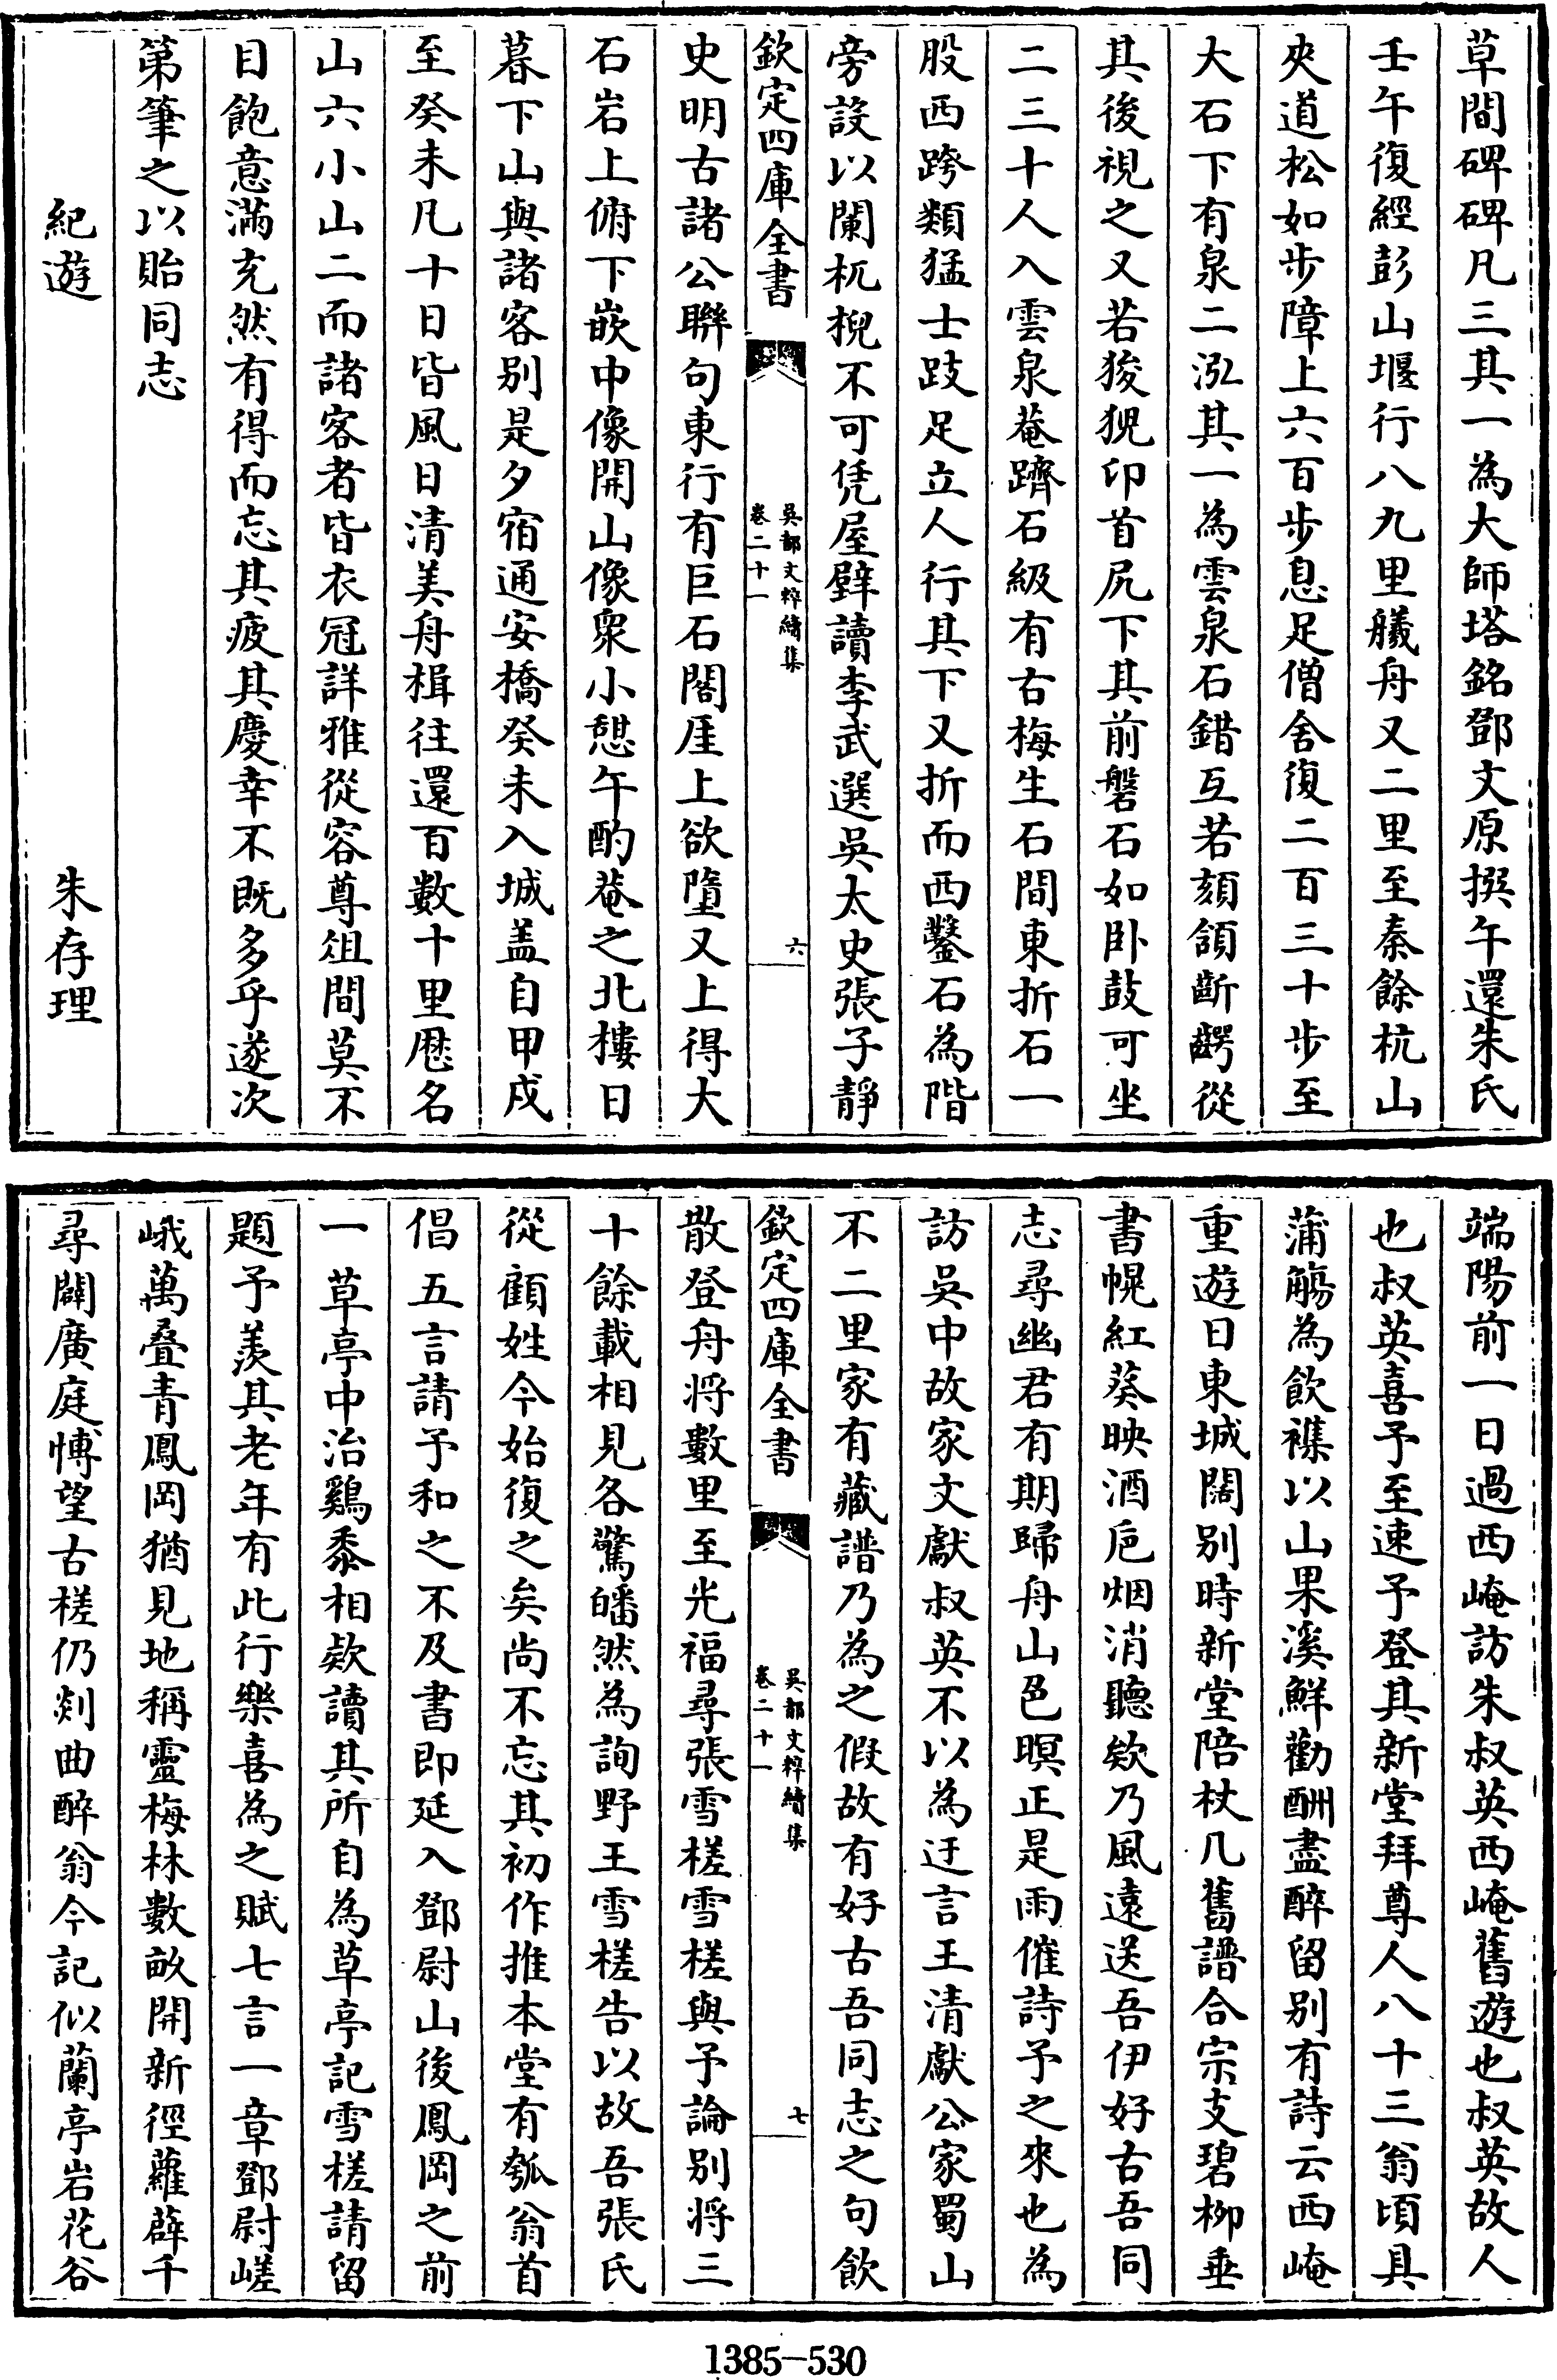 草間碑碑凡三其一為大師塔銘鄧文原撰午還朱氏
壬午復經彭山堰行八九里艤舟又二里至秦餘杭山
夾道松如步障上六百步息足僧舍復二百三十步至
大石下有泉二泓其一為雲泉石錯互若頦頷齗齶從
其後視之又若狻猊印首尻下其前磐石如卧鼓可坐
二三十人入雲泉菴躋石級有古梅生石間東折石一
股西跨類猛士跂足立人行其下又折而西鑿石為階
旁設以闌杌棿不可凭屋壁讀李武選吳太史張子靜
欽定四庫全書
吳都文粹續集
卷二十一
六
史明古諸公聯句東行有巨石閣厓上欲墮又上得大
石岩上俯下嵌中像開山像衆小憇午酌菴之北樓日
暮下山與諸客别是夕宿通安橋癸未入城盖自甲戌
至癸未凡十日皆風日清美舟楫往還百數十里厯名
山六小山二而諸客者皆衣冠詳雅從容尊俎間莫不
目飽意滿充然有得而忘其疲其慶幸不既多乎遂次
第筆之以貽同志
紀遊
朱存理
端陽前一日過西崦訪朱叔英西崦舊遊也叔英故人
也叔英喜予至速予登其新堂拜尊人八十三翁頃具
蒲觴為飲襍以山果溪鮮勸酬盡醉留别有詩云西崦
重遊日東城闊别時新堂陪杖几舊譜合宗支碧栁垂
書幌紅葵映酒巵烟消聽欸乃風遠送吾伊好古吾同
志尋幽君有期歸舟山邑暝正是雨催詩予之來也為
訪吳中故家文獻叔英不以為迂言王清獻公家蜀山
不二里家有藏譜乃為之假故有好古吾同志之句飲
欽定四庫全書
吳都文粹續集
卷二十一
七
散登舟將數里至光福尋張雪槎雪槎與予論别將三
十餘載相見各驚皤然為詢野王雪槎告以故吾張氏
從顧姓今始復之矣尚不忘其初作推本堂有瓠翁首
倡五言請予和之不及書即延入鄧尉山後鳳岡之前
一草亭中治鷄黍相欵讀其所自為草亭記雪槎請留
題予羡其老年有此行樂喜為之賦七言一章鄧尉嵯
峨萬叠青鳳岡猶見地稱靈梅林數畝開新徑蘿薜千
尋闢廣庭愽望古槎仍剡曲醉翁今記似蘭亭岩花谷
1385-530